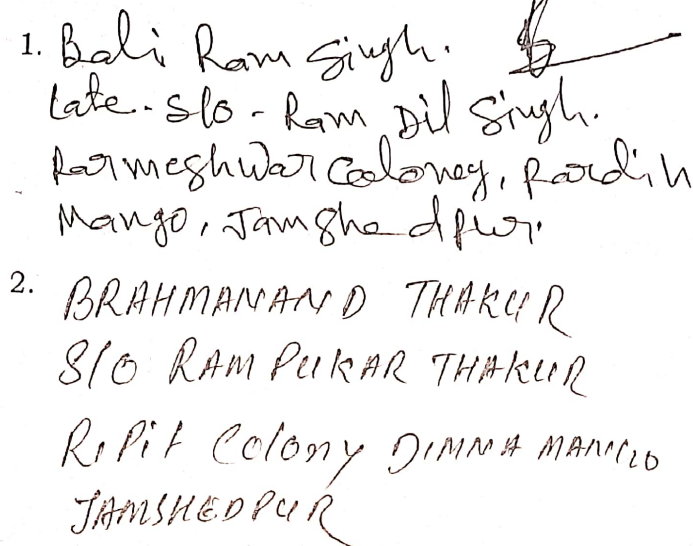 1. Bali Ram Singh.
Late. S/o - Ram Dil Singh.
Parmeshwar Cooloney, Pardih
Mango, Jamshedpur.
2. BRAHMANAND THAKUR
S/O RAM PUKAR THAKUR
R. Pit Colony DIMNA MANGO
JAMSHEDPUR